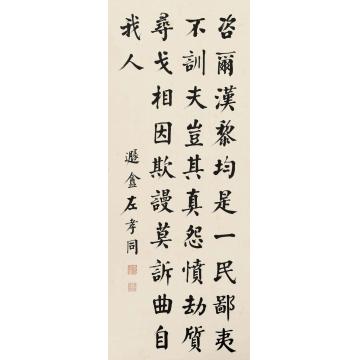 咨爾漢黎均是一民鄙夷
不訓夫豈其真怨憤劫質
尋戈相因欺謾莫訴曲自
我人
遯盦左孝同